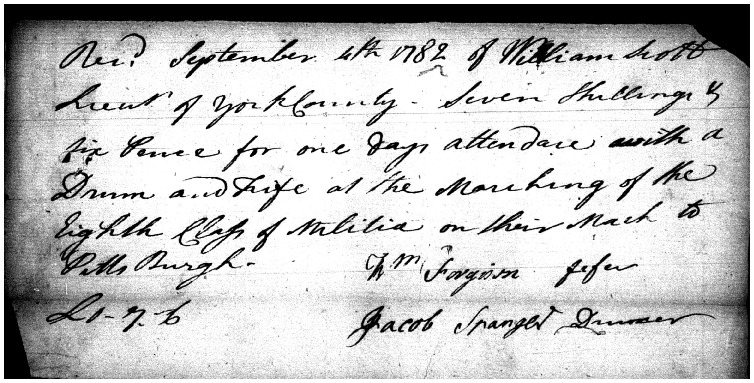 Rec.d September 4th 1782 of William Scott
Lieut of York County - Seven Shillings &
six Pence for one Days attendace with a
Drum and Fife at the Marching of the
Eighth Class of Militia on their Mach to
Pitts Burgh-
Wm Forgison fifer
£0-7-6
Jacob Spangler Drumer